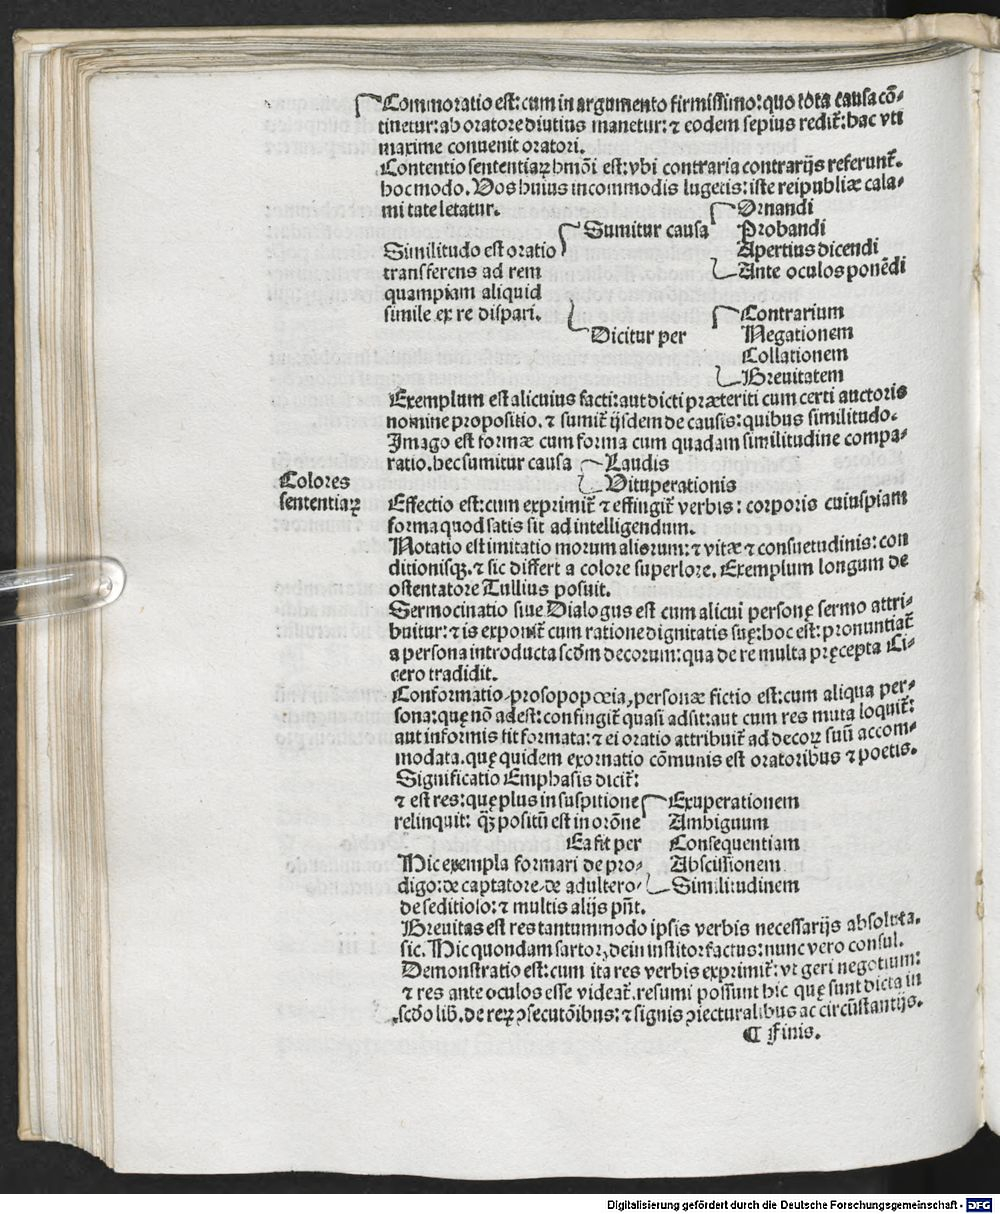 Commoratio est: cum in argumento firmissimo: quo tota causa cõ-
tinetur: ab oratore diutius manetur: ⁊ eodem sepius redit̃: hac vti
maxime conuenit oratori.
Contentio sententiaꝝ hmõi est: vbi contraria contrarijs referunt̃.
hoc modo. Vos huius incommodis lugetis: iste reipublicæ cala-
mi tate letatur.
Similitudo est oratio
transferens ad rem
quampiam aliquid
simile ex re dispari.
Sumitur causa
Ornandi
Probandi
Apertius dicendi
Ante oculos ponẽdi
Dicitur per
Contrarium
Negationem
Collationem
Breuitatem
Exemplum est alicuius facti: aut dicti præteriti cum certi auctoris
nomine propositio. ⁊ sumit̃ ijsdem de causis: quibus similitudo.
Imago est formæ cum forma cum quadam similitudine compa-
ratio. hec sumitur causa
Laudis
Vituperationis
Colores
sententiaꝝ
Effectio est: cum exprimit̃ ⁊ effingit̃ verbis: corporis cuiuspiam
forma quod satis sit ad intelligendum.
Notatio est imitatio morum aliorum: ⁊ vitæ ⁊ consuetudinis: con
ditionisqꝫ. ⁊ sic differt a colore superiore. Exemplum longum de
ostentatore Tullius posuit.
Sermocinatio siue Dialogus est cum alicui personę sermo attri-
buitur: ⁊ is exponit̃ cum ratione dignitatis suę: hoc est: pronuntiat̃
a persona introducta scd̃m decorum: qua de re multa pręcepta Ci-
cero tradidit.
Conformatio/prosopopœia, personæ fictio est: cum aliqua per-
sona: quę nõ adest: confingit̃ quasi adsit: aut cum res muta loquit̃:
aut informis fit formata: ⁊ ei oratio attribuit̃ ad decoꝝ suũ accom-
modata. quę quidem exornatio cõmunis est oratoribus ⁊ poetis.
Significatio Emphasis dicit̃:
⁊ est res: quę plus in suspitione
relinquit: qꝫ̃ positũ est in orõne
Ea fit per
Exuperationem
Ambiguum
Consequentiam
Abscissionem
Similitudinem
Hic exempla formari de pro-
digo: de captatore/de adultero/
de seditioso: ⁊ multis alijs pñt.
Breuitas est res tantummodo ipsis verbis necessarijs absoluta.
sic. Hic quondam sartor, dein institor factus: nunc vero consul.
Demonstratio est: cum ita res verbis exprimit̃: vt geri negotium:
⁊ res ante oculos esse videat̃. resumi possunt hic quę sunt dicta in
scd̃o lib̃. de reꝝ ꝯsecutõibus: ⁊ signis ꝯiecturalibus ac circũstantijs.
¶ Finis.
Digitalisierung gefördert durch die Deutsche Forschungsgemeinschaft - DFG